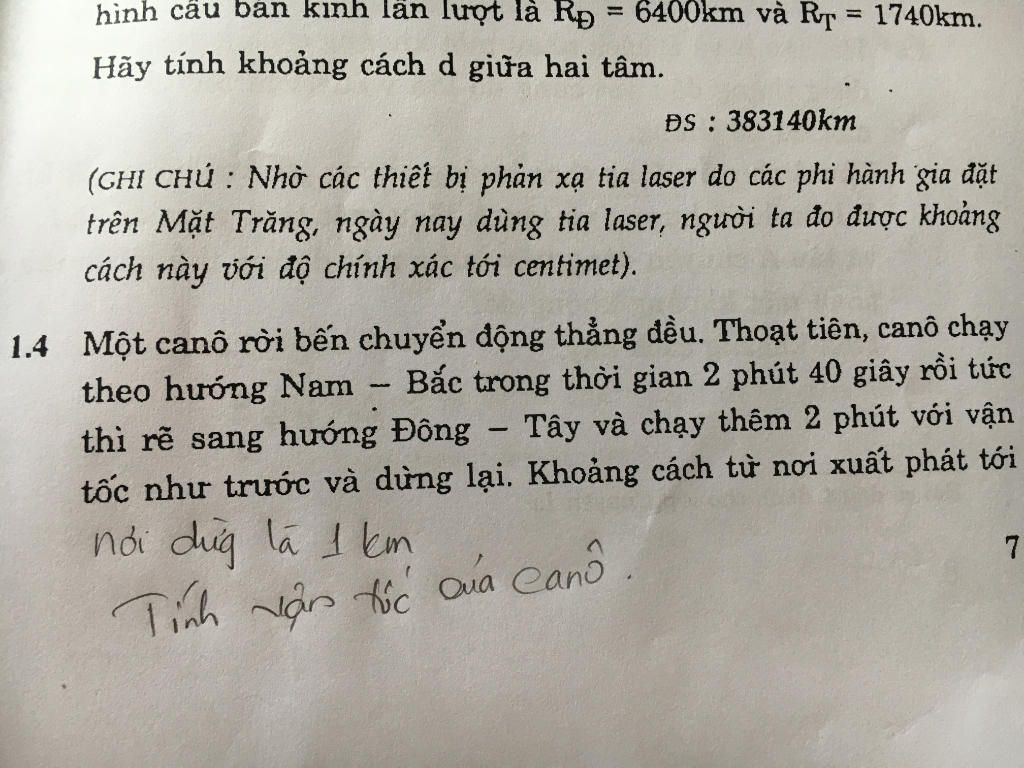 hình cầu bán kính lần lượt là RĐ = 6400km và RT = 1740km.
Hãy tính khoảng cách d giữa hai tâm.
ĐS : 383140km
(GHI CHÚ : Nhờ các thiết bị phản xạ tia laser do các phi hành gia đặt
trên Mặt Trăng, ngày nay dùng tia laser, người ta đo được khoảng
cách này với độ chính xác tới centimet).
1.4 Một canô rời bến chuyển động thẳng đều. Thoạt tiên, canô chạy
theo hướng Nam – Bắc trong thời gian 2 phút 40 giây rồi tức
thì rẽ sang hướng Đông – Tây và chạy thêm 2 phút với vận
tốc như trước và dừng lại. Khoảng cách từ nơi xuất phát tới
nơi dừng là 1 km
7
Tính vận tốc của canô.